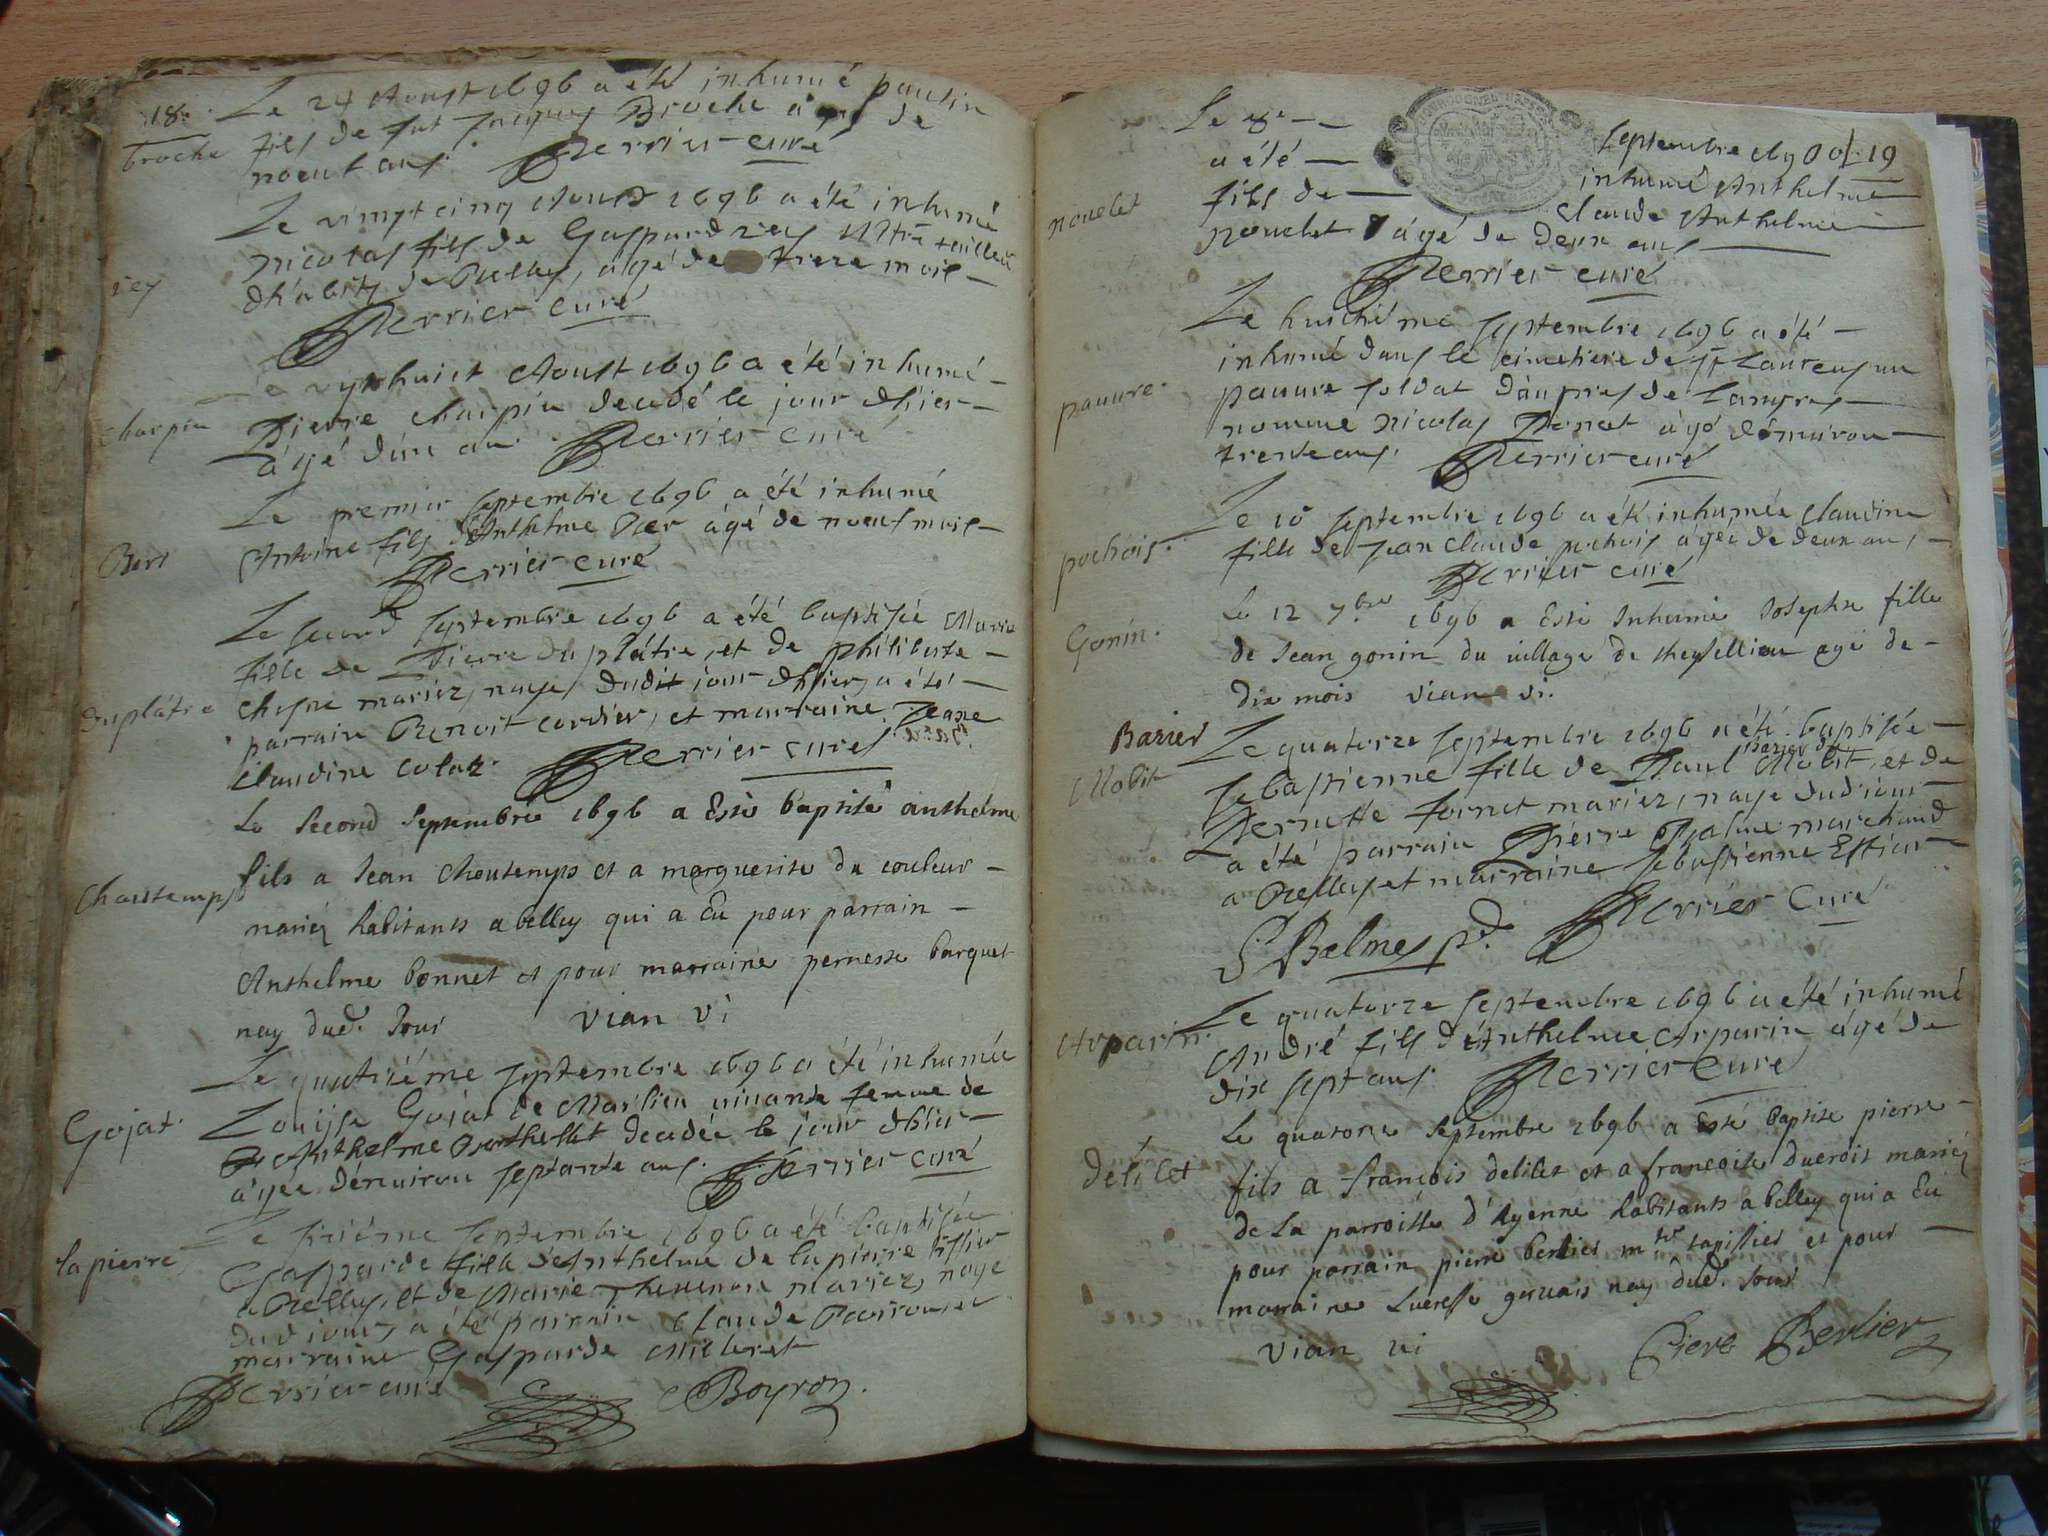 18.
Le 24 Aoust 1696 a été inhumé paulin
broche fils de fut Jacques Broche âgé de
noeuf ans. Perrier curé
Le vingtcinq Aoust 1696 a été inhumé
nicolas fils de Gaspard rey Mtre tailleur
rey
d'habitz de Belley, agé de treze mois
Perrier curé
huict Aoust 1696 a été inhumé
charpin Pierre charpin decedé le jour d'hier
âgé d'un an. Perrier curé
Le premier septembre 1696 a été inhumé
Antoine fils d'Anthelme âgé de noeuf mois
Perrier curé
Le second septembre 1696 a été baptisée Marie
fille de Pierre duplâtre, et de philiberte
duplâtre mariez, naye dudit jour d'hier, a été
parrain Benoit cordier, et marraine Jeane
Claudine colaz. Perrier curé
Le second septembre 1696 a Esté baptisé anthelme
Chaustemps fils a Jean Choutemps et a marguerite du couleur
mariéz habitants a belley qui a Eu pour parrain
Anthelme bonnet et pour marraine pernesse barquet
nay dud. Jour vian vi
Le quatriéme septembre 1696 a été inhumée
Gojat. Louijse Gojat de Marlieu vivante femme de
Anthelme Berthellet decedée le jour d'hier
âgée d'environ septante ans. Perrier curé
Le siziéme septembre 1696 a été baptisée
la pierre Gasparde fille d'Anthelme de lapierre tissier
a Belley, et de Marie Thevenon mariez, naye
dud jour, a été parrain Claude
marraine Gasparde Milleret
Perrier curé Boyron.
Le 8e septembre 1696 19
a été inhumé Anthelme
fils de Claude Anthelme
nouelet nouelet âgé de deux ans
Perrier curé
Le huichiéme septembre 1696 a été
inhumé dans le cimetiere de st Laurens un
pauure. pauure soldat d'aupres de Langres
nommé nicolas âgé d'environ
trente ans. Perrier curé
Le 10 septembre 1696 a été inhumée claudine
pochois. fille de Jean claude pochois agée de deux ans
Perrier curé
Le 12 7bre 1696 a Esté Inhumé Josephe fille
Gonin. de Jean gonin du village de agé de
dix mois vian vi.
Barier Le quatorze septembre 1696 a été baptisée
barier du
Mobit Sebastienne fille de Paul Mobit, et de
Pernette fornet mariez, naye dud jour
a été parrain Pierre Balme marchand
a Belley et marraine Sebastienne
S Balmes pd. Perrier Curé
Le quatorze septembre 1696 a été inhumé
Arparin. André fils d'Anthelme Arparin âgé de
dix sept ans. Perrier Curé
Le quatorze septembre 1696 a Esté baptisé pierre
délilet fils a françois delilet et a françoise ducroit mariéz
de La parroisse d'Ayenne habitants a belley qui a Eu
pour parrain pierre berlier mtre tapissier et pour
marraine Lucresse geruais nay dud. Jour
vian vi Piere Berlier